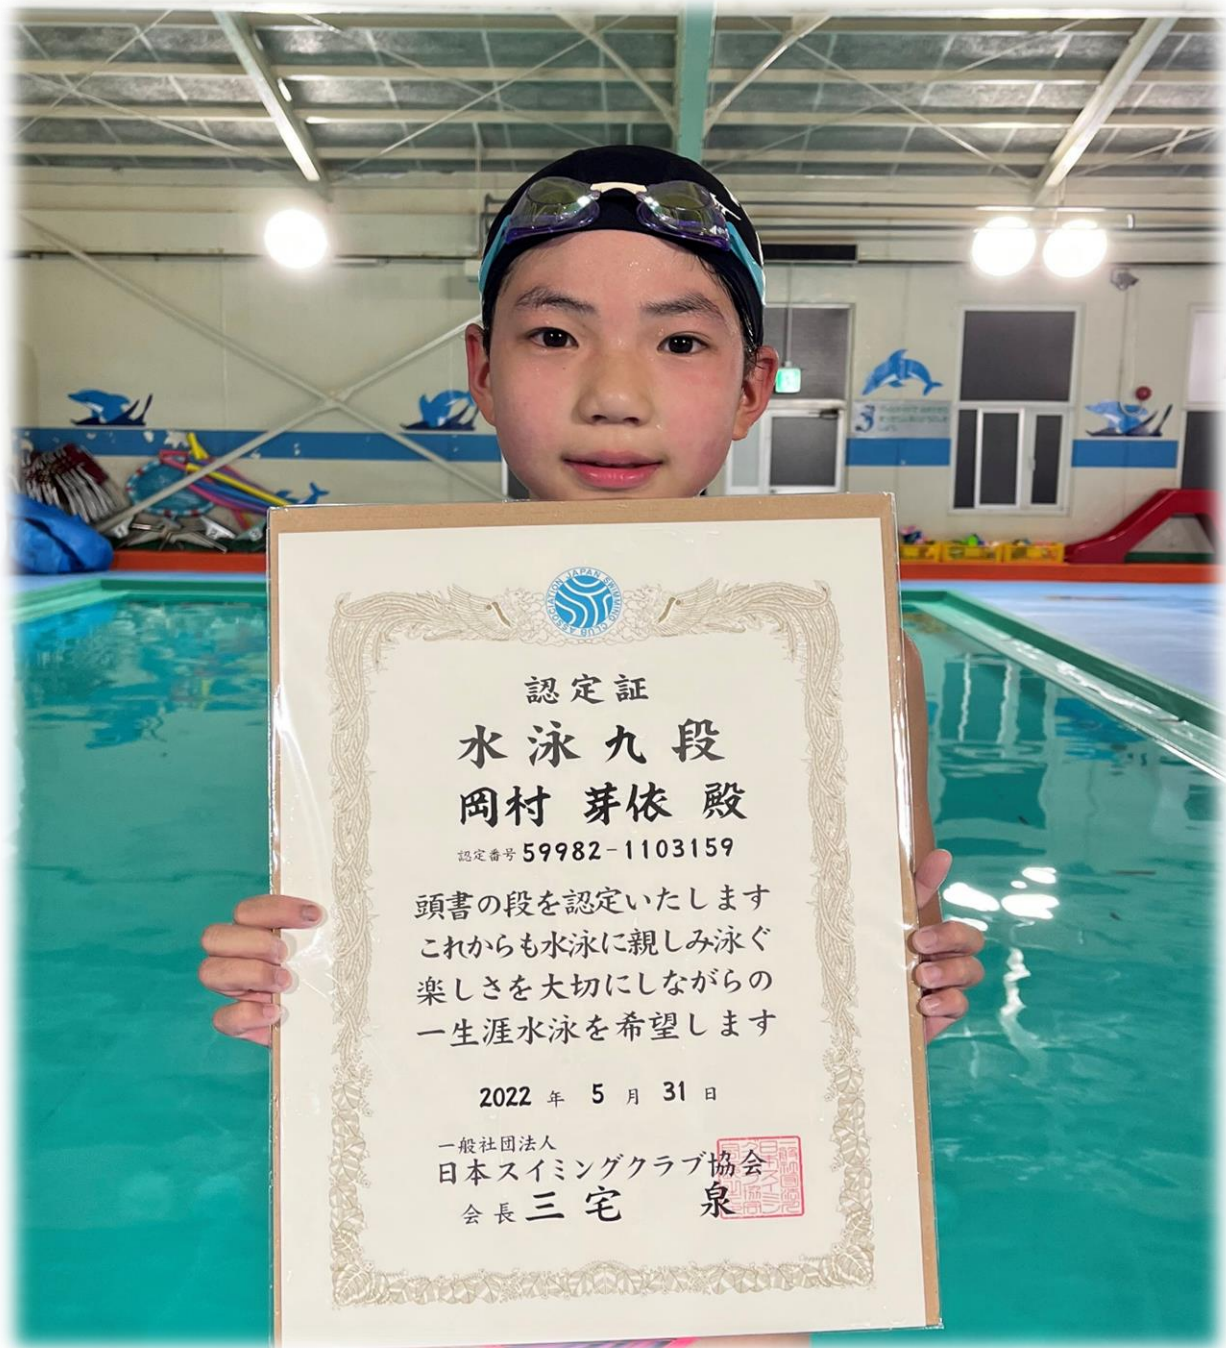 JAPAN SWIMMING CLUB ASSOCIATION
認定証
水泳九段
岡村 芽依 殿
認定番号 59982-1103159
頭書の段を認定いたします
これからも水泳に親しみ泳ぐ
楽しさを大切にしながらの
一生涯水泳を希望します
2022 年 5 月 31 日
一般社団法人
日本スイミングクラブ協会
会長 三宅 泉